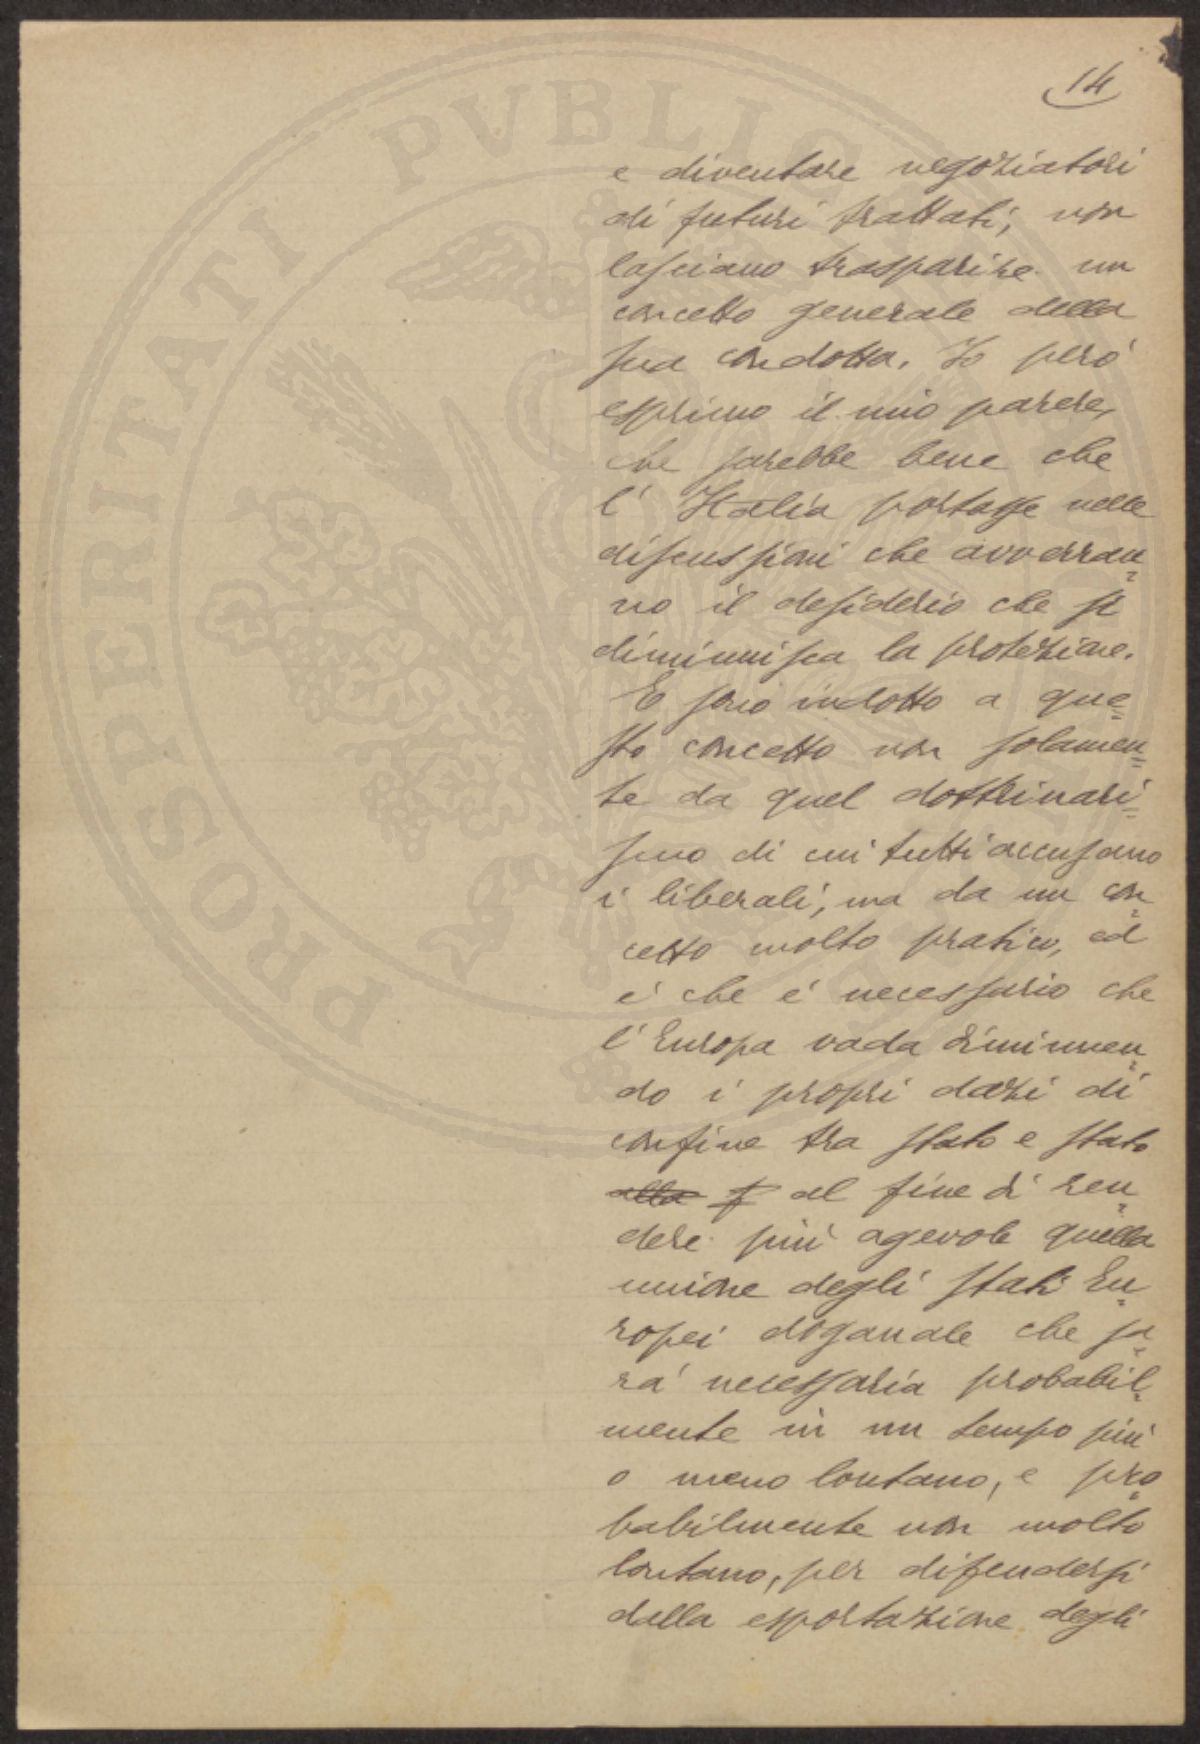 14
e diventare negoziatori
di futuri trattati, non
lasciano trasparire un
concetto generale della
sua condotta. Io però
esprimo il mio parere,
che sarebbe bene che
l'Italia portasse nelle
discussioni che avverran=
no il desiderio che si
diminuisca la protezione.
E sono indotto a que=
sto concetto non solamen=
te da quel dottrinari=
smo di cui tutti accusano
i liberali, ma da un con=
cetto molto pratico, ed
è che è necessario che
l'Europa vada diminuen=
do i propri dazi di
confine tra stato e stato
alla f al fine di ren=
dere più agevole quella
unione degli Stati Eu=
ropei doganale che sa=
rà necessaria probabil=
mente in un tempo più
o meno lontano, e pro=
babilmente non molto
lontano, per difendersi
dalla esportazione degli
PROSPERITATI PVBLICAE